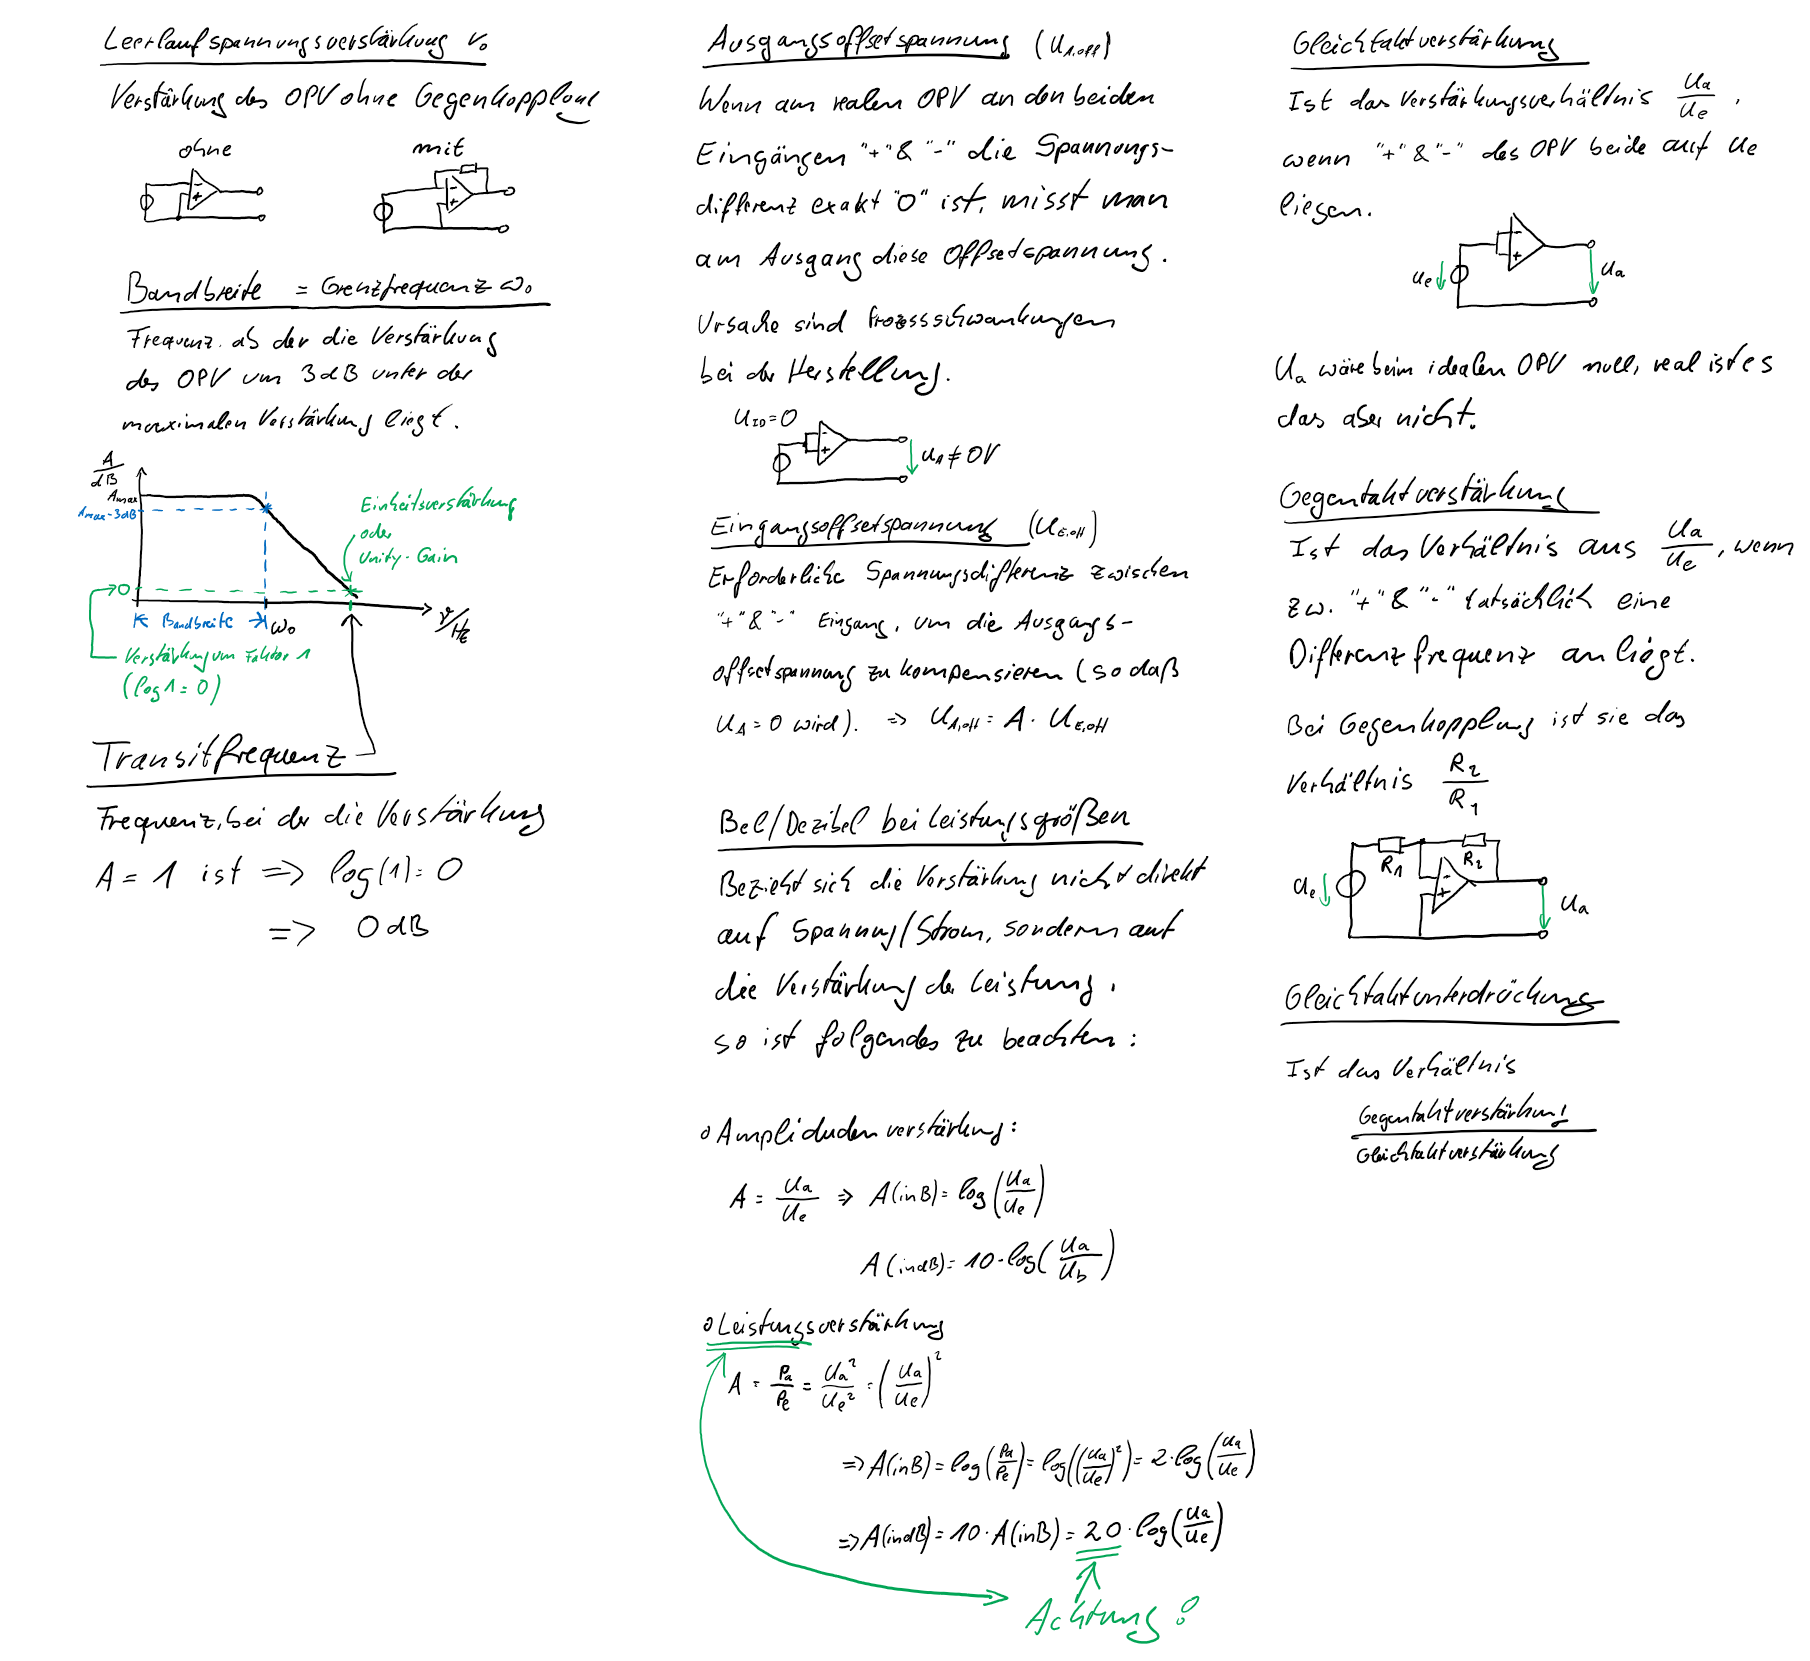 Leerlaufspannungsverstärkung v₀
Verstärkung des OPV ohne Gegenkopplung
ohne
mit
- +
- +
Bandbreite = Grenzfrequenz ω₀
Frequenz, ab der die Verstärkung
des OPV um 3dB unter der
maximalen Verstärkung liegt.
A/dB
Amax
Amax-3dB
0
Einheitsverstärkung
oder
Unity-Gain
Bandbreite
ω₀
/Hz
Verstärkung um Faktor 1
(log 1 = 0)
Transitfrequenz
Frequenz, bei der die Verstärkung
A = 1 ist => log(1) = 0
=> 0 dB
Ausgangsoffsetspannung (U_A,off)
Wenn am realen OPV an den beiden
Eingängen "+" & "-" die Spannungs-
differenz exakt "0" ist, misst man
am Ausgang diese Offsetspannung.
Ursache sind Prozessschwankungen
bei der Herstellung.
U_ID = 0
- +
U_A ≠ 0V
Eingangsoffsetspannung (U_E,off)
Erforderliche Spannungsdifferenz zwischen
"+" & "-" Eingang, um die Ausgangs-
offsetspannung zu kompensieren (so daß
U_A = 0 wird). => U_A,off = A · U_E,off
Bel/Dezibel bei Leistungsgrößen
Bezieht sich die Verstärkung nicht direkt
auf Spannung/Strom, sondern auf
die Verstärkung der Leistung,
so ist folgendes zu beachten:
o Ampliduden verstärkung:
A = Ua/Ue => A(in B) = log(Ua/Ue)
A(in dB) = 10 · log(Ua/Ub)
o Leistungsverstärkung
A = Pa/Pe = Ua²/Ue² = (Ua/Ue)²
=> A(in B) = log(Pa/Pe) = log((Ua/Ue)²) = 2·log(Ua/Ue)
=> A(in dB) = 10 · A(in B) = 20 · log(Ua/Ue)
Achtung!
Gleichtaktverstärkung
Ist das Verstärkungsverhältnis Ua/Ue,
wenn "+" & "-" des OPV beide auf Ue
liegen.
- +
Ue
Ua
Ua wäre beim idealen OPV null, real ist es
das aber nicht.
Gegentaktverstärkung
Ist das Verhältnis aus Ua/Ue, wenn
zw. "+" & "-" tatsächlich eine
Differenzfrequenz anliegt.
Bei Gegenkopplung ist sie das
Verhältnis R₂/R₁
R₁
R₂
- +
Ue
Ua
Gleichtaktunterdrückung
Ist das Verhältnis
Gegentaktverstärkung
Gleichtaktverstärkung